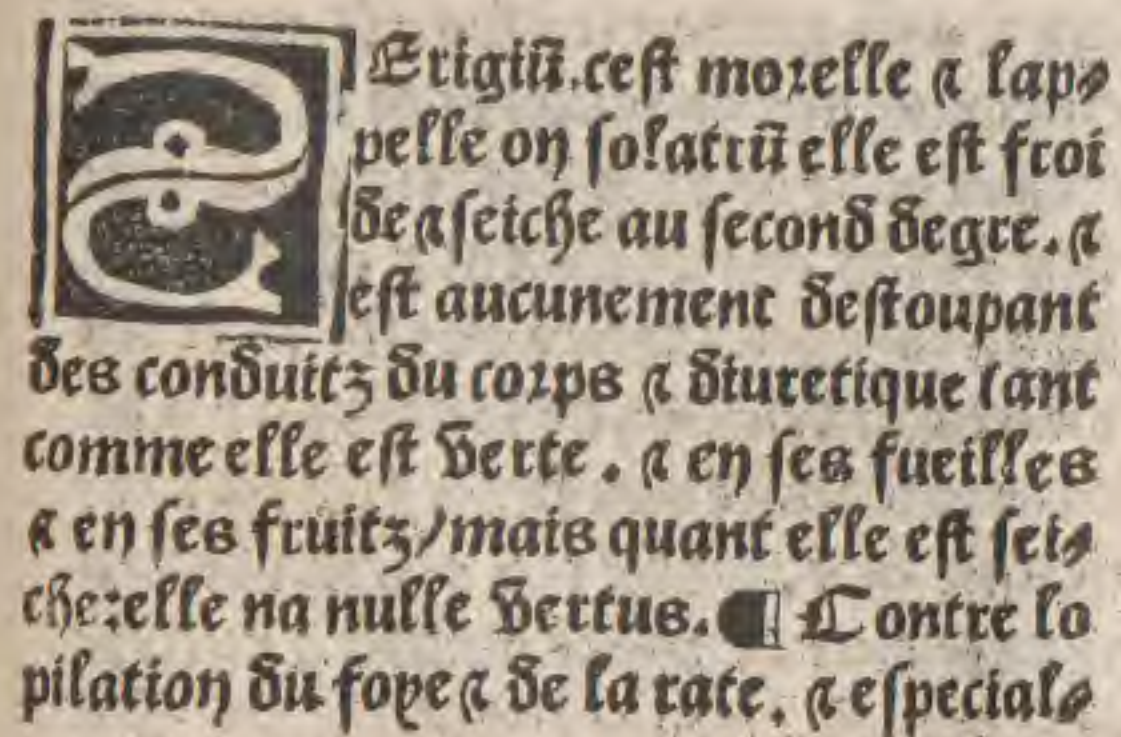 SErigiũ.cest morelle ⁊ lap⸗
pelle on ſolatrũ elle eſt froi
de ⁊ ſeiche au ſecond degre. ⁊
eſt aucunement deſtoupant
des conduitz du corps ⁊ diuretique tant
comme elle eſt verte . ⁊ en ſes fueilles
⁊ en ſes fruitz/mais quant elle eſt ſei⸗
che:elle na nulle vertus. ¶ Contre lo
pilation du foye ⁊ de la rate. ⁊ eſpecial⸗